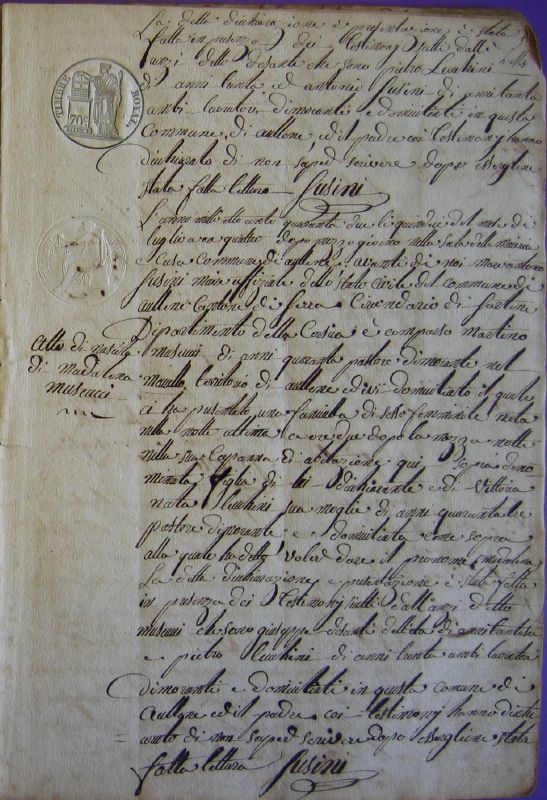 La detta dichiarazione e presentazione è stata
fatta in presenza dei Testimonj scelti dall'
anzi detto che sono pietro Lucchini
di anni trenta ed antonio Susini di anni trenta
ambi lavoratori dimoranti e domiciliati in questa
Commune di aullene, ed il padre coi testimonj hanno
dichiarato di non saper scrivere dopo essergliene
stata fatta lettura Susini
TIMBRE ROYAL
70c
L'anno mille otto cento quaranta due li quindici del mese di
luglio a ore quattro dopo mezzo giorno nella sala della Mairia
e Casa Commune di aullene, avanti di noi marcantonio
Susini maire uffiziale dello stato civile del commune di
aullene Cantone di Serra Circondario di Sartene
Atto di nascita
di Madalena
muscucci
Dipartimento della Corsica è comparso martino
muscucci di anni quaranta pastore dimorante nel
territorio di aullene ed ivi domiciliato il quale
ci ha presentato una fanciulla di sesso femminile nata
nella notte ultima a ore due dopo la mezza notte
nella sua Capanna di abitazione qui sopra deno
minata figlia di lui dichiarante e di Vittoria
nata Lucchini sua moglie di anni quaranta tre
pastore dimorante e domiciliata come sopra
alla quale ha detto voler dare il pronome Madalena
La detta dichiarazione e presentazione è stata fatta
in presenza dei Testimonj scelti dall'anzi detto
muscucci che sono giuseppe desanti dell'età di anni
e pietro Lucchini di anni trenta ambi lavoratori
dimoranti e domiciliati in questa comune di
aullene ed il padre coi testimonj hanno dichi
arato di non saper scrivere dopo essergliene stata
fatta lettura Susini